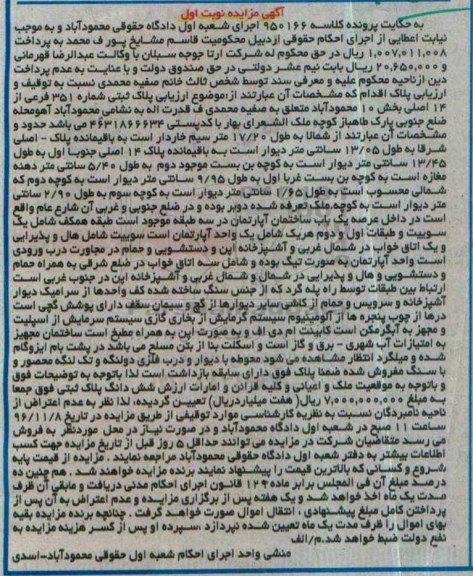 آگهی مزایده نوبت اول
به حکایت پرونده کلاسه ۹۵۰۱۶۶ اجرای شعبه اول دادگاه حقوقی محمودآباد و به موجب
نیابت اعطایی از اجرای احکام حقوقی اردبیل محکومیت قاسم مشایخ پور ف محمد به پرداخت
۱,۰۰۷,۰۱۱,۰۰۸ ریال در حق محکوم له شرکت ارتا جوجه سبلان با وکالت عبدالرضا قهرمانی
و ۲۰,۶۵۰,۰۰۰ ریال بابت نیم عشر دولتی در حق صندوق دولت و با عنایت به عدم پرداخت
دین ازناحیه محکوم علیه و معرفی سند توسط شخص ثالث خانم صفیه محمدی نسبت به توقیف و
ارزیابی پلاک اقدام که مشخصات آن عبارتند از:موضوع ارزیابی پلاک ثبتی شماره ۳۵۱ فرعی از
۱۴ اصلی بخش ۱۰ محمودآباد متعلق به صفیه محمدی ف قدرت اله به نشامی محمودآباد آهومحله
ضلع جنوبی پارک طاهباز کوچه ملک الشعرای بهار با کدپستی ۴۶۳۱۸۶۶۶۳۴ می باشد حدود و
مشخصات آن عبارتند از شمالا به طول ۱۷/۲۰ متر سیم خاردار است به باقیمانده پلاک - اصلی
شرقا به طول ۱۳/۰۵ سانتی متر دیوار است به باقیمانده پلاک ۱۴ اصلی جنوبا اول به طول
۱۳/۴۵ سانتی متر دیوار است به کوچه بن بست موجود دوم به طول ۵/۴۰ سانتی متر دهنه
مغازه است به کوچه بن بست غربا اول به طول ۹/۹۵ سانتی متر دیوار است به کوچه دوم که
شمالی محسوب است به طول ۱/۶۵ سانتی متر دیوار است به کوچه سوم به طول ۲/۹۰ سانتی
متر دیوار است به کوچه.ملک تعرفه شده دوبر بوده و در ضلع جنوبی و غربی آن شارع عام واقع
است در داخل عرصه یک باب ساختمان آپارتمان در سه طبقه موجود است طبقه همکف شامل یک
سوییت و طبقات اول و دوم هریک شامل یک واحد آپارتمان است سوییت شامل هال و پذیرایی
و یک اتاق خواب در شمال غربی و آشپزخانه اپن و دستشویی و حمام در مجاورت درب ورودی
است واحد آپارتمان به صورت تیپ بوده و شامل سه اتاق خواب در ضلع شرقی به همراه حمام
و دستشویی و هال و پذیرایی در شمال و شمال غربی و آشپزخانه اپن در جنوب غربی است
ارتباط بین طبقات توسط راه پله گرد که از جنس سنگ ساخته شده کف واحدها از سرامیک دیوار
آشپزخانه و سرویس و حمام از کاشی سایر دیوارها از گچ و سیمان سقف دارای پوشش گچی است
درها از چوب پنجره ها از آلومینیوم سیستم گرمایش از بخاری گازی سیستم سرمایش از اسپلیت
و مجهز به آبگرمکن است کابینت ام دی اف و به صورت اپن به همراه مطبخ است ساختمان مجهز
به امتیازات آب شهری - برق و گاز است و اسکلت بنا از بتن مسلح می باشد در پشت بام ایزوگام
شده و میلگرد انتظار مشاهده می شود محوطه با دیوار و درب فلزی دولنگه و تک لنگه محصور و
با سنگ مفروش شده ضمنا پلاک فوق دارای سابقه بازداشت است لذا باتوجه به توضیحات فوق
و باتوجه به موقعیت ملک و اعیانی و کلیه قرائن و امارات ارزش شش دانگ پلاک ثبتی فوق جمعا
به مبلغ ۷,۰۰۰,۰۰۰,۰۰۰ ریال( هفت میلیاردریال) تعیین گردیده، لذا نظر به عدم اعتراض از
ناحیه نامبردگان نسبت به نظریه کارشناسی موارد توقیفی از طریق مزایده در تاریخ ۹۶/۱۱/۸
ساعت ۱۱ صبح در شعبه اول دادگاه محمودآباد و در صورت نیاز در محل موردنظر به فروش
می رسد متقاضیان شرکت در مزایده می توانند حداقل ۵ روز قبل از تاریخ مزایده جهت کسب
اطلاعات بیشتر به دفتر شعبه اول دادگاه حقوقی محمودآباد مراجعه نمایند . مزایده از قیمت پایه
شروع و کسانی که بالاترین قیمت را پیشنهاد نمایند برنده مزایده خواهند شد . هم چنین ده
درصد مبلغ آن فی المجلس برابر ماده ۱۲۹ قانون اجرای احکام مدنی دریافت و مابقی آن ظرف
مدت یک ماه اخذ خواهد شد و یک هفته پس از برگزاری مزایده و عدم اعتراض به آن پس از
پرداختن کامل مبلغ پیشنهادی ، انتقال اموال صورت خواهد گرفت . چنانچه برنده مزایده بقیه
بهای اموال را ظرف مدت یک ماه تعیین شده نپردازد .سپرده او پس از کسر هزینه مزایده به
نفع دولت ضبط خواهد شد.م/الف
منشی واحد اجرای احکام شعبه اول حقوقی محمودآباد-اسدی